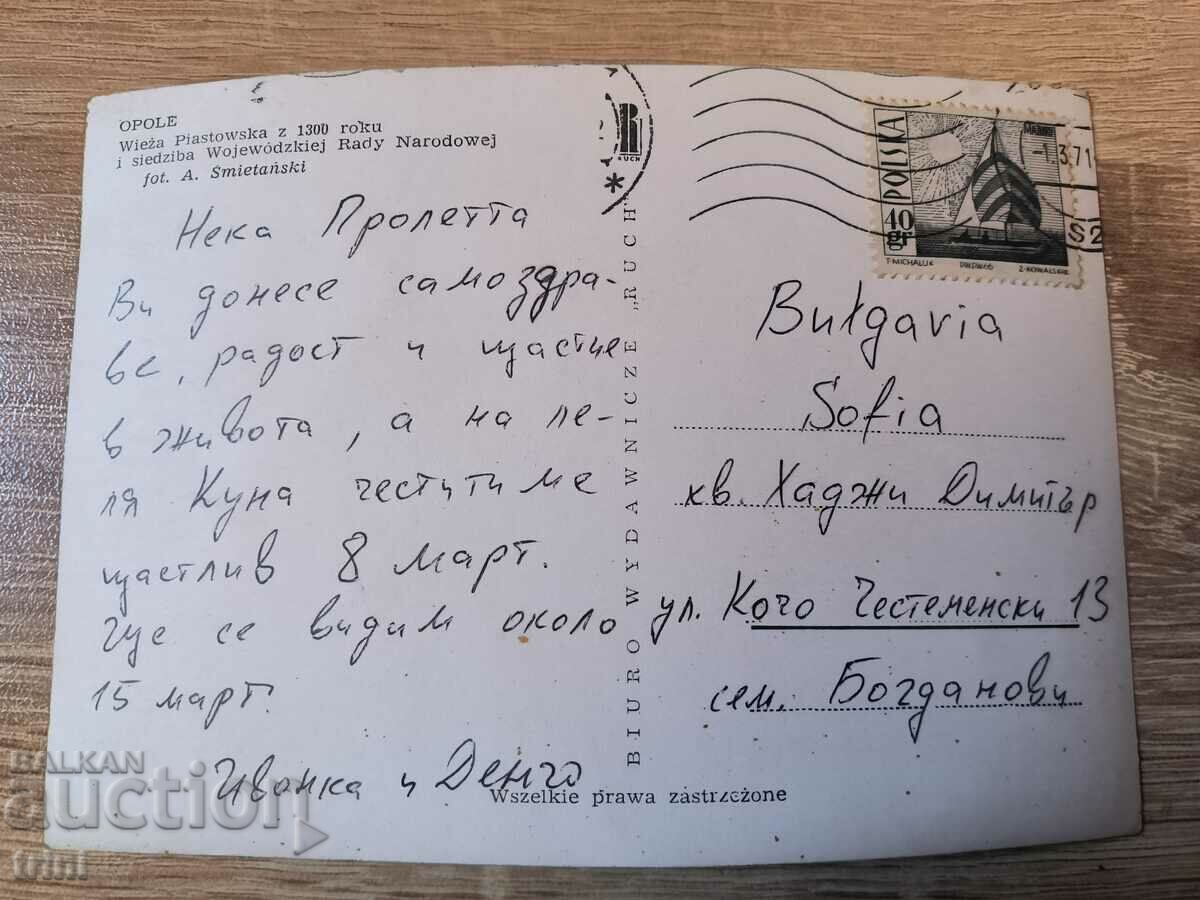 OPOLE
Wieża Piastowska z 1300 roku
i siedziba Wojewódzkiej Rady Narodowej
fot. A. Śmietański
Нека Пролетта
Ви донесе само здра-
ве, радост и щастие
в живота, а на ле-
ля Куна честитиме
щастлив 8 март.
Ще се видим около
15 март.
Иванка и Денчо
BIURO WYDAWNICZE „RUCH"
Wszelkie prawa zastrzeżone
RUCH
POLSKA
40
gr
T. MICHALUK
Z. KOWALSKI
-1.3.71
Bułgaria
Sofia
кв. Хаджи Димитър
ул. Кочо Честеменски 13
сем. Богданови
BALKAN
auction
trini